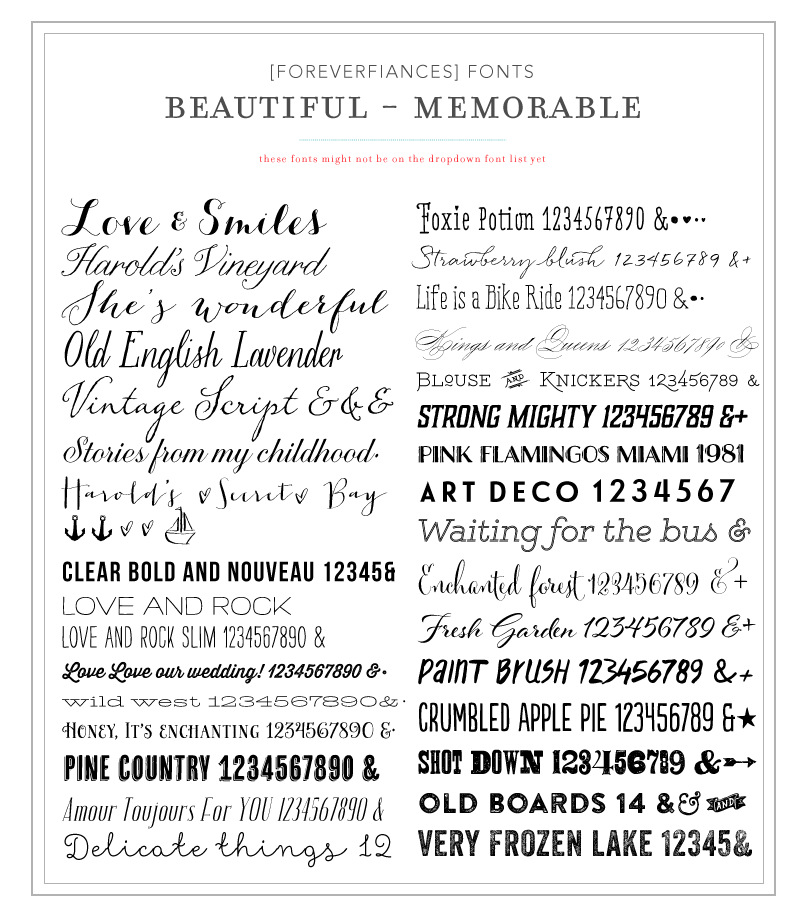 [FOREVERFIANCES] FONTS
BEAUTIFUL - MEMORABLE
these fonts might not be on the dropdown font list yet
Love & Smiles
Harold's Vineyard
She's wonderful
Old English Lavender
Vintage Script &&&
Stories from my childhood.
Harold's Secret Bay
CLEAR BOLD AND NOUVEAU 12345&
LOVE AND ROCK
LOVE AND ROCK SLIM 1234567890 &
Love Love our wedding! 1234567890 &.
wild west 1234567890&.
HONEY, IT'S ENCHANTING 1234567890 &.
PINE COUNTRY 1234567890 &
Amour Toujours For YOU 1234567890 &
Delicate things 12
Foxie Potion 1234567890 &
Strawberry blush 123456789 &+
Life is a Bike Ride 1234567890 &
Kings and Queens 1234567890 &
BLOUSE AND KNICKERS 123456789 &
STRONG MIGHTY 123456789 &+
PINK FLAMINGOS MIAMI 1981
ART DECO 1234567
Waiting for the bus &
Enchanted forest 123456789 &+
Fresh Garden 123456789 &+
PAINT BRUSH 123456789 &+
CRUMBLED APPLE PIE 123456789 &★
SHOT DOWN 123456789 &
OLD BOARDS 14 && AND
VERY FROZEN LAKE 12345&